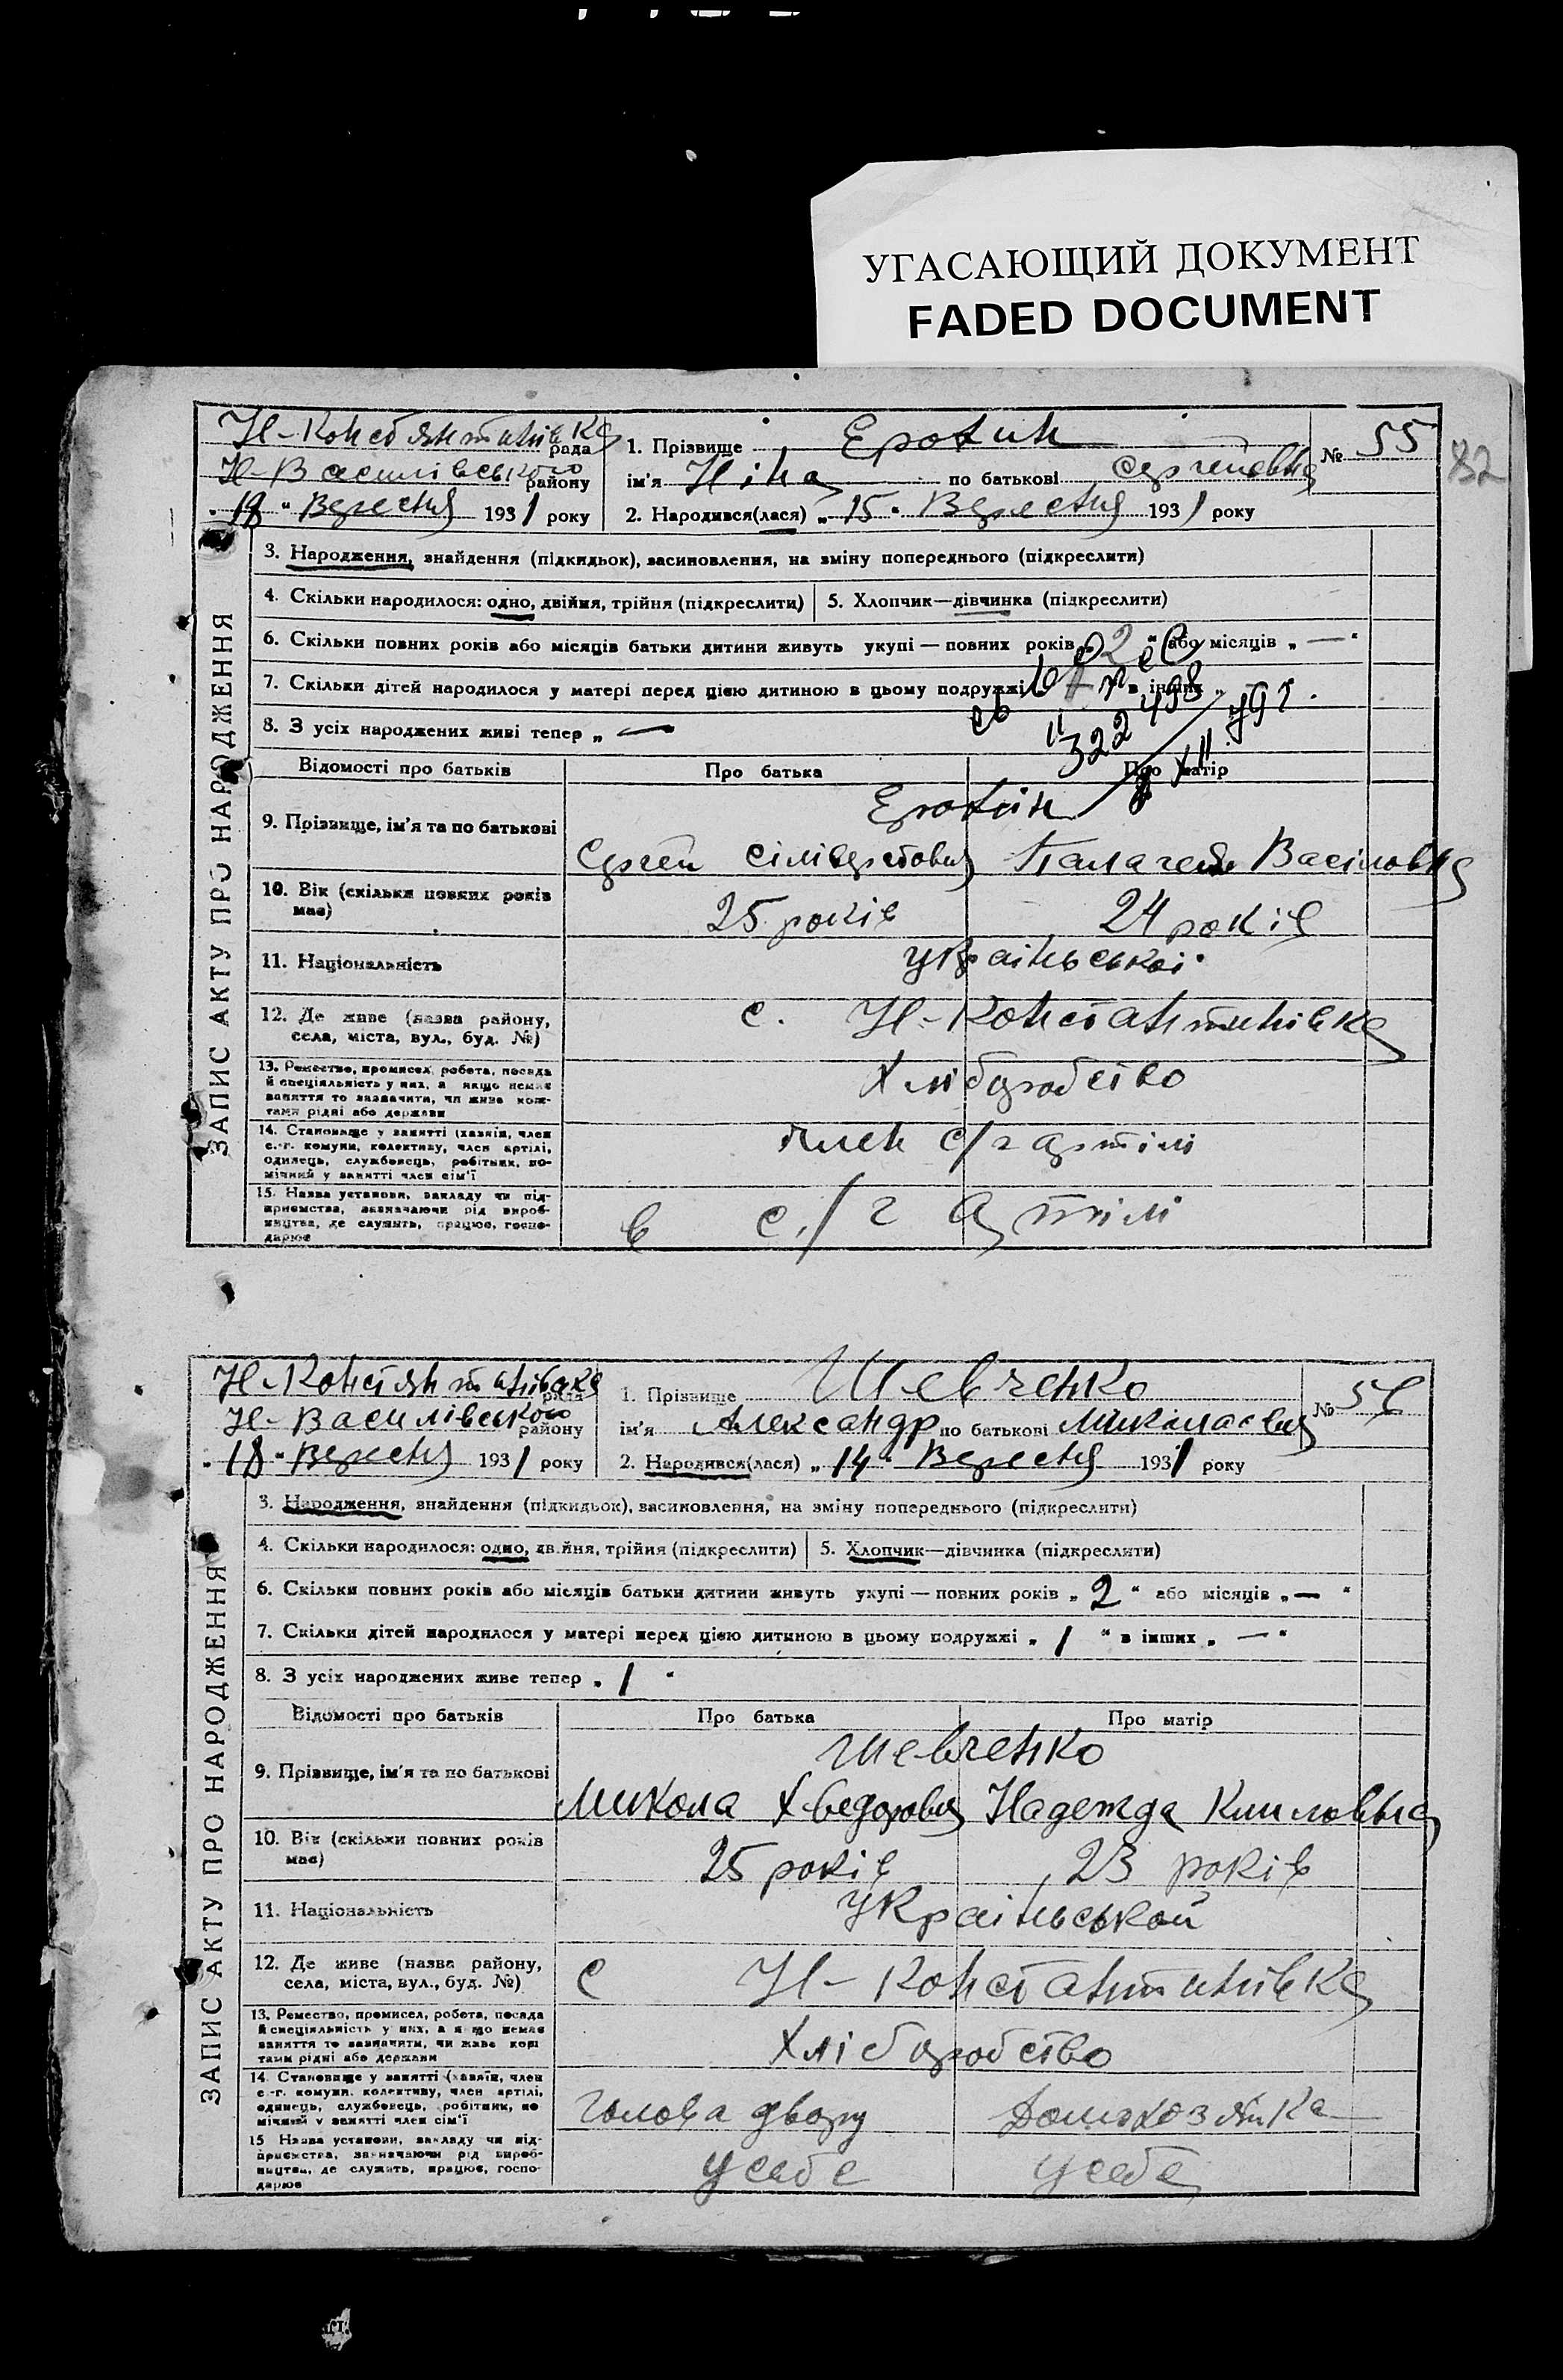 УГАСАЮЩИЙ ДОКУМЕНТ
FADED DOCUMENT
82
ЗАПИС АКТУ ПРО НАРОДЖЕННЯ
Н-Констянтинівка рада
Н-Василівського району
"18" Вересня 1931 року
1. Прізвище Еротин
№ 55
ім'я Ніна по батькові Сергеевна
2. Народився(лася) „15" Вересня 1931 року
3. Народження, знайдення (підкидьок), васиновлення, на зміну попереднього (підкреслити)
4. Скільки народилося: одно, двійня, трійня (підкреслити)
5. Хлопчик—дівчинка (підкреслити)
6. Скільки повних років або місяців батьки дитини живуть укупі — повних років „2" або місяців „—"
7. Скільки дітей народилося у матері перед цією дитиною в цьому подружжі в інших
8. З усіх народжених живі тепер „ —
Відомості про батьків Про батька Про матір
9. Прізвище, ім'я та по батькові
Еротин
Сергей Сіліверстович
Васіловна
10. Вік (скільки повних років має)
25 років 24 років
11. Національність
української
12. Де живе (назва району, села, міста, вул., буд. №)
с. Н-Константинівка
13. Ремество, промисел, робота, посада
й спеціяльність у них, а якщо немає
заняття то зазначити, чи живе кош-
тами рідні або держави
Хліборобство
14. Становище у занятті (хазяїн, член
с.-г. комуни, колективу, член артілі,
одинець, службовець, робітник, по-
мічний у занятті член сім'ї
член с/г артілі
15. Назва установи, закладу чи під-
приємства, зазначаючи рід вироб-
ництва, де служить, працює, госпо-
дарює
в с/г артілі
ЗАПИС АКТУ ПРО НАРОДЖЕННЯ
Н-Констянтинівка рада
Н-Василівського району
"18" Вересня 1931 року
1. Прізвище Шевченко
№ 56
ім'я Александр по батькові Миколаєвич
2. Народився(лася) „14" Вересня 1931 року
3. Народження, знайдення (підкидьок), васиновлення, на зміну попереднього (підкреслити)
4. Скільки народилося: одно, двійня, трійня (підкреслити)
5. Хлопчик—дівчинка (підкреслити)
6. Скільки повних років або місяців батьки дитини живуть укупі — повних років „2" або місяців „—"
7. Скільки дітей народилося у матері перед цією дитиною в цьому подружжі „1" в інших „—"
8. З усіх народжених живе тепер „1"
Відомості про батьків Про батька Про матір
9. Прізвище, ім'я та по батькові
Шевченко
Микола Хведорович Надежда
10. Вік (скільки повних років має)
25 років 23 років
11. Національність
Українськой
12. Де живе (назва району, села, міста, вул., буд. №)
с Н-Константинівка
13. Ремество, промисел, робота, посада
й спеціяльність у них, а якщо немає
заняття то зазначити, чи живе кош
тами рідні або держави
Хліборобство
14. Становище у занятті (хазяїн, член
с.-г. комуни, колективу, член артілі,
одинець, службовець, робітник, по
мічний у занятті член сім'ї
голова двору Домохозяйка
15 Назва установи, закладу чи під-
приємства, зазначаючи рід вироб-
ництва, де служить, працює, госпо-
дарює
у себе у себе